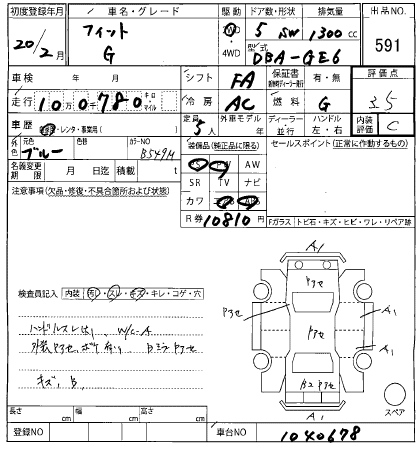 初度登録年月 車名・グレード 駆動 ドア数・形状 排気量 出品NO.
20/2月 フィット G 2WD 4WD 5 SW 1300 cc 591
型式 DBA-GE6
車検 年 月 シフト FA 保証書 有・無 評価点
走行 100780 キロ マイル 冷房 AC 燃料 G 3.5
車歴 レンタ・事業用 定員 5人 外車モデル 年 ディーラー 並行 ハンドル 左・右 内装評価 C
外色 元色 ブルー 色替 カラーNO B549M
装備品(純正品に限る) セールスポイント(正常に動作するもの)
名義変更期限 月 日迄 積載 t
PS PW AW
SR TV ナビ
注意事項(欠品・修復・不具合箇所および状態)
カワ エアB ABS
R券 10810円 Fガラス トビ石・キズ・ヒビ・ワレ・リペア跡
検査員記入 内装 汚レ・スレ・キズ・キレ・コゲ・穴
ハンドルスレ W/C-A
外装アセ
キズ, B
A1
アセ
アセ
アセ
A1
A1
アセ
A1
スペア
長さ cm 幅 cm 高さ cm
登録NO 車台NO 1040678